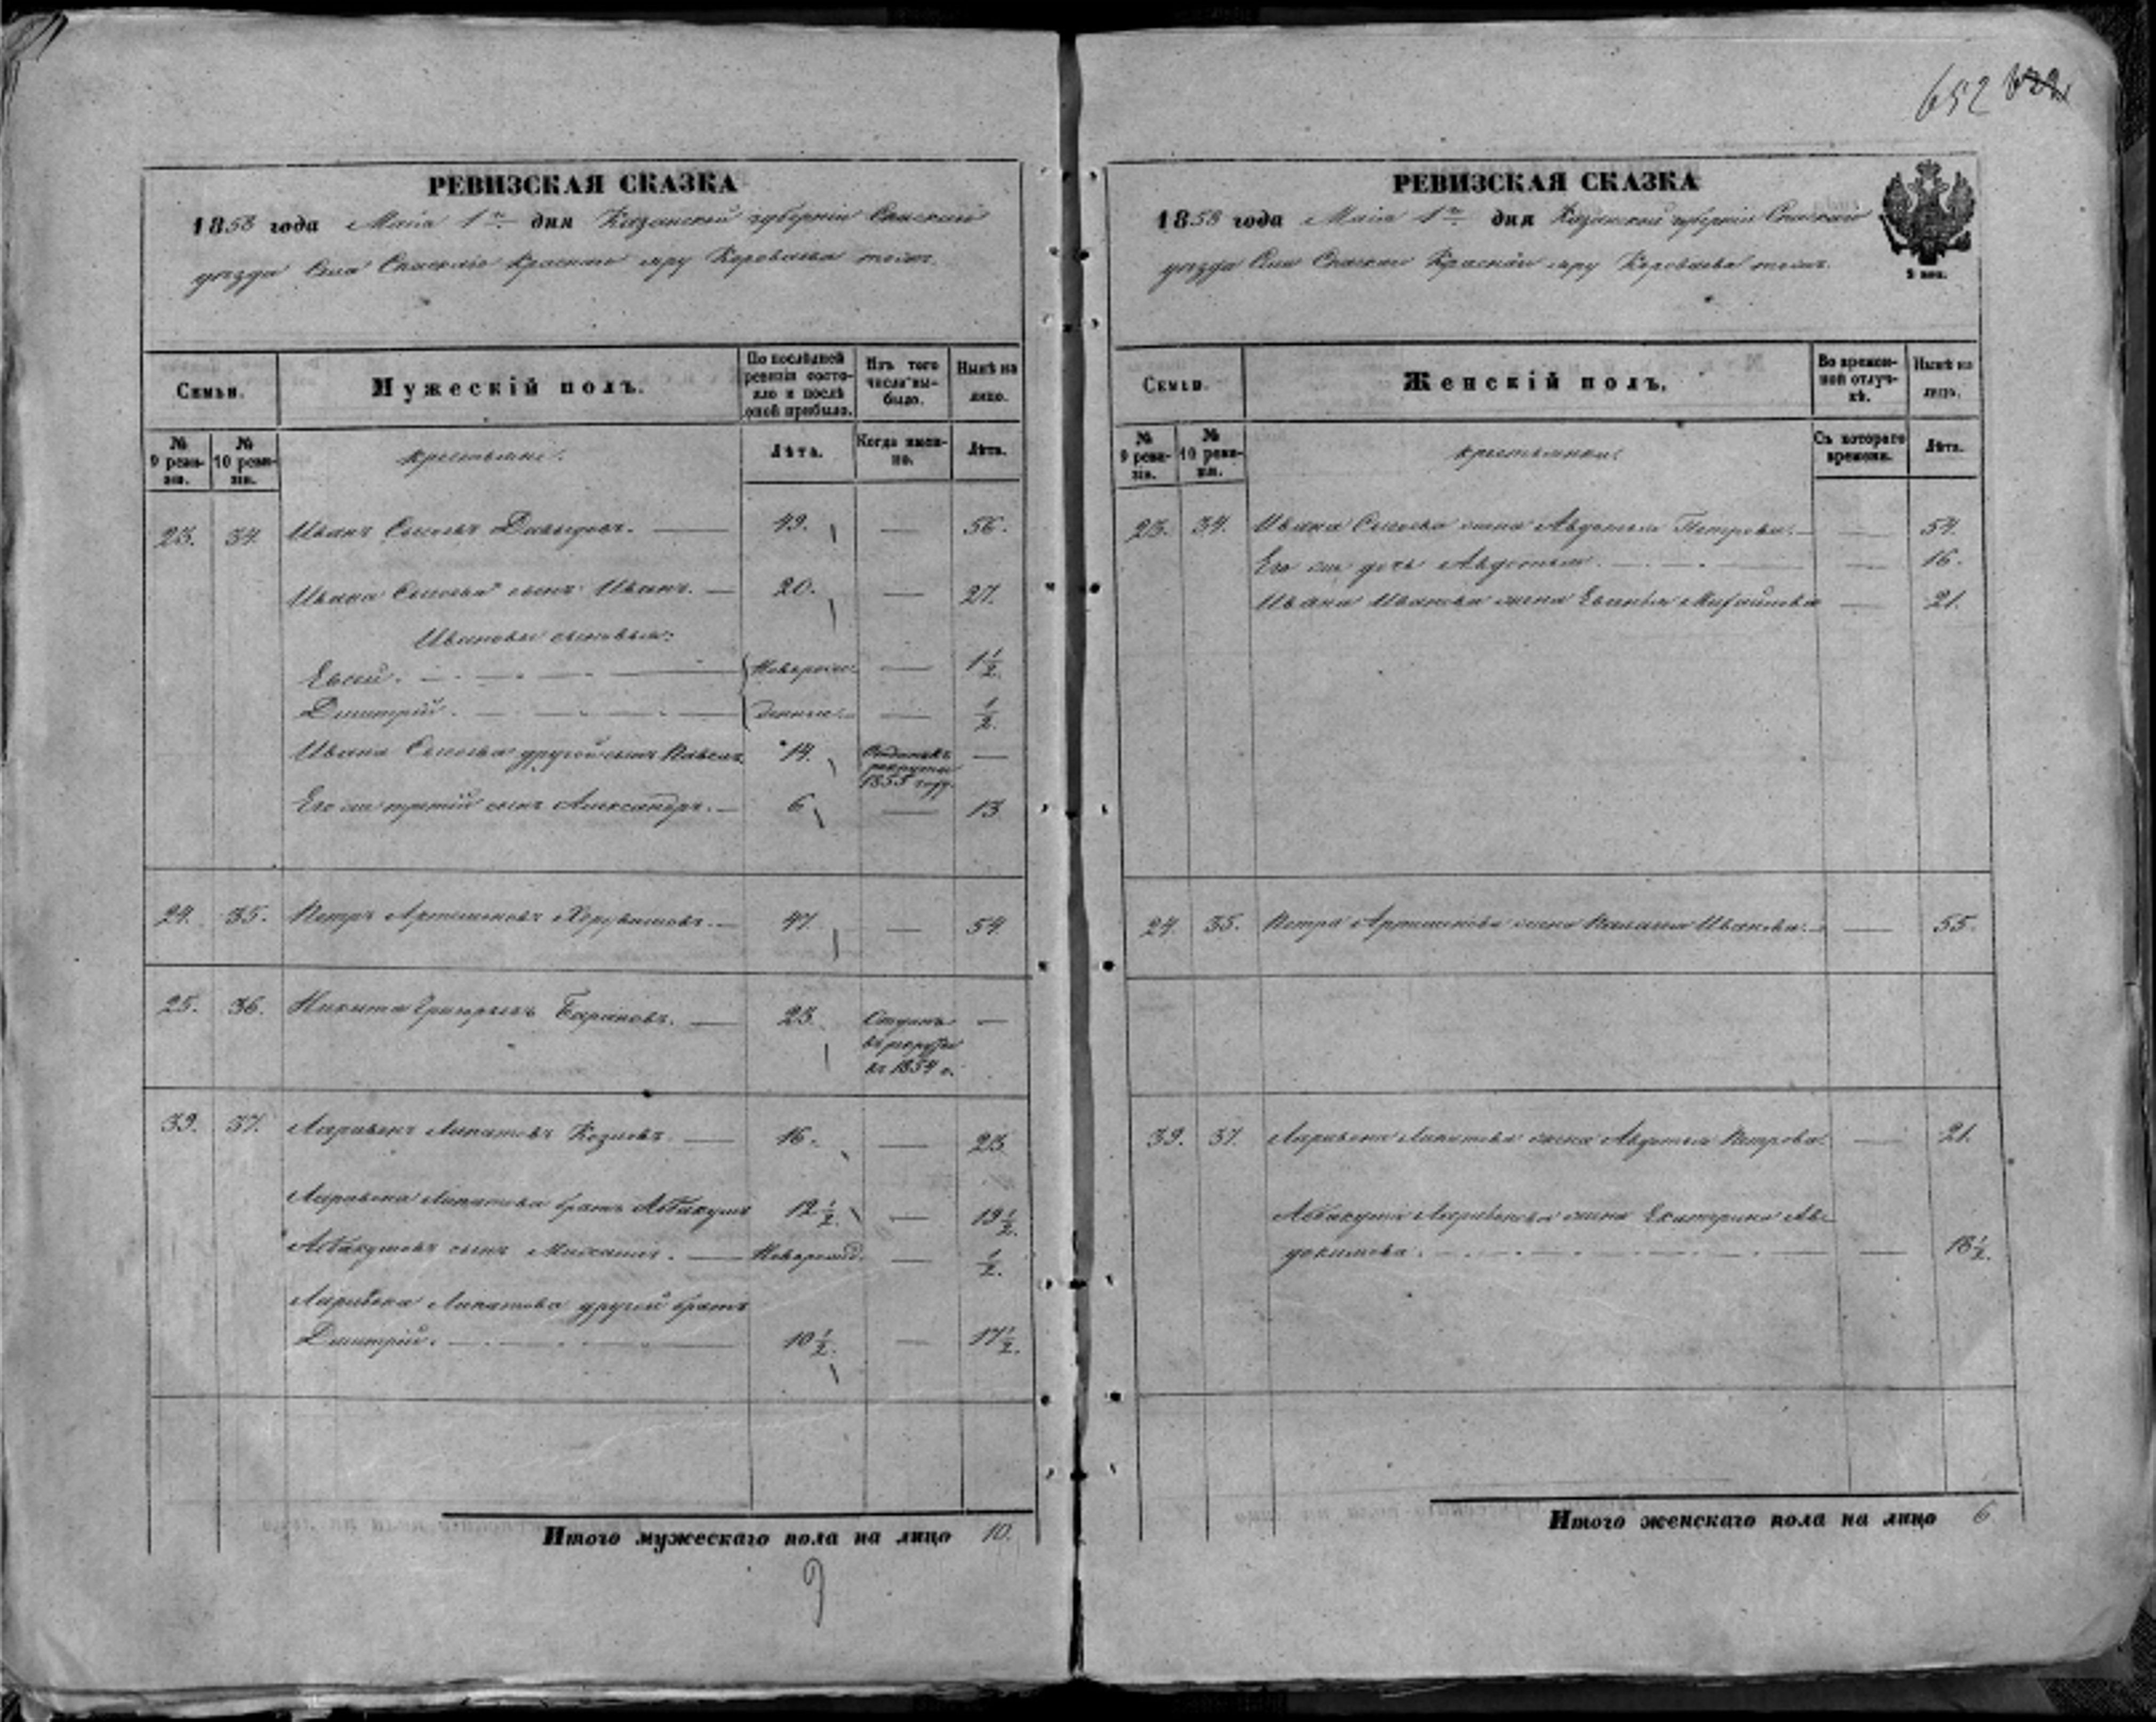 652
РЕВИЗСКАЯ СКАЗКА
1858 года Маія 1го дня Казанской губерніи Спаскаго
уѣзда Села Спаскаго
Семьи.
Мужескій полъ.
По послѣдней ревизіи состояло и послѣ оной прибыло.
Изъ того числа выбыло.
Нынѣ на лицо.
№ 9 ревизіи.
№ 10 ревизіи.
крестьяне:
Лѣта.
Когда именно.
Лѣта.
23. 34. Иванъ Сысоевъ Давыдовъ. — 49. — 56.
Ивана Сысоева сынъ Иванъ. — 20. — 27.
Ивановы сыновья:
Евсей. — Новорож- — 1 1/2.
Дмитрій. — денные. — 1/2.
Ивана Сысоева другой сынъ Павелъ 14. 1855 году. —
Его же третій сынъ Александръ. — 6 — 13
24. 35. Петръ Артемоновъ — 47. — 54.
25. 36. Никита Григорьевъ Барановъ. — 23. въ рекруты въ 1854 г. —
39. 37. Ларивонъ Липатовъ Козловъ. — 16. — 23.
Ларивона Липатова братъ Абакумъ 12 1/2. — 19 1/2.
Абакумовъ сынъ — Новорожд. — 1/2.
Ларивона Липатова другой братъ
Дмитрій. — 10 1/2. — 17 1/2.
Итого мужескаго пола на лицо 10.
9
РЕВИЗСКАЯ СКАЗКА
1858 года Маія 1го дня Казанской губерніи Спаскаго
уѣзда Села Спаскаго
Семьи.
Женскій полъ.
Во временной отлучкѣ.
Нынѣ на лицо.
№ 9 ревизіи.
№ 10 ревизіи.
крестьянки:
Съ котораго времени.
Лѣта.
23. 34. Ивана Сысоева жена Авдотья Петрова. — — 54.
Его же дочь Авдотья. — — 16.
Ивана Иванова жена Михайлова — 21.
24. 35. Петра Артемонова жена Иванова. — — 55.
39. 37. Ларивона Липатова жена Авдотья Петрова. — 21.
Абакума жена Екатерина Ав-
докимова. — — 18 1/2.
Итого женскаго пола на лицо 6